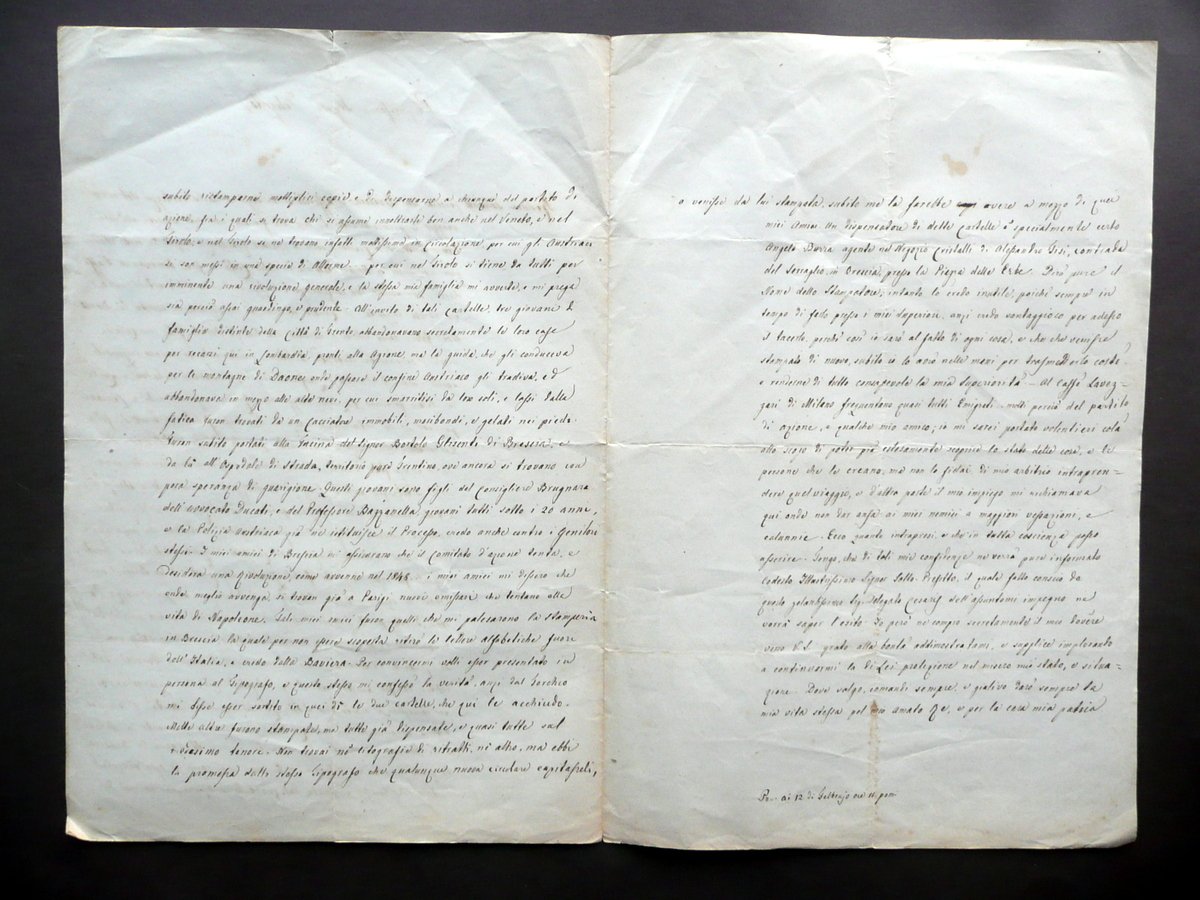 subito ristamparne molteplici copie e di dispensarne a chiunque del partito di
azione, fra i quali si trova chi si assume innoltrarle ben anche nel Veneto, e nel
Tirolo, e nel Tirolo se ne trovano infatti moltissime in circolazione per cui gli Austriaci
se son messi in una specie di Allarme - per cui nel Tirolo si tiene da tutti per
imminente una rivoluzione generale, e la stessa mia famiglia mi avverte, e mi prega
sia perciò assai guardingo, e prudente. All'invito di tali Cartelle, tre giovani di
famiglia distinte della Città di Trento abbandonavano secretamente le loro case
per recarsi qui in Lombardia, pronti alla Azione, ma la guida, che gli conduceva
per le montagne di Daone, onde passare il confine Austriaco gli tradiva, ed
abbandonava in mezzo alle alte nevi, per cui smarritisi da loro soli, e lassi dalla
fatica furon trovati da un Cacciatore immobili, moribondi, e gelati nei piedi.
Furon subito portati alla fucina del Signor Bortolo Glisenti di e
da là all'Ospitale di Strada, territorio pure Trentino, ove ancora si trovano con
poca speranza di guarigione. Questi giovani sono figli del Consigliere Brugnara
dell'Avvocato Ducati, e del Professore Bazzanella giovani tutti sotto i 20 anni,
e la Polizia Austriaca già ne istituisce il Processo, credo anche contro i Genitori
stessi - I miei amici di Brescia mi assicurano che il Comitato d'azione tenta, e
desidera una Rivoluzione, come avvenne nel 1848 .. i miei amici mi dissero che
onde meglio avvenga, si trovan già a Parigi nuovi emissari che tentano alla
vita di Napoleone. Tali miei amici furon quelli che mi palesarono la Stamperia
in Brescia la quale per non esser scoperta ritira le lettere alfabetiche fuore
dell'Italia, e credo dalla Baviera. Per convincermi volli esser presentato in
persona al Tipografo, e questo stesso mi confessò la verità, anzi dal torchio
mi disse esser sortito in quei dì le due cartelle, che qui le acchiudo.
Molte altre furono stampate, ma tutte già dispensate, e quasi tutte sul
medesimo tenore. Non trovai nè litografie di ritratti, nè altro, ma ebbi
la promessa dallo stesso Tipografo che qualunque nuova circolare capitasseli,
o venisse da lui stampata, subito me la farebbe avere a mezzo di quei
miei Amici. Un dispensatore di dette Cartelle è specialmente certo
Angelo Burra agente nel Negozio Cristalli di Alessandro Gesi, contrada
del Serraglio, in Brescia, presso la Piazza delle Erbe. Però pure il
Nome dello Stampatore, intanto lo credo inutile, poichè sempre in
tempo di farlo presso i miei Superiori, anzi credo vantaggioso per adesso
il tacerlo, perchè così io sarò al fatto di ogni cosa, e che che venisse
stampato di nuovo, subito io lo avrò nelle mani per trasmetterlo costà
e renderne di tutto consapevole la mia Superiorità - Al Caffè Lavez-
zari di Milano frequentano quasi tutti Emigrati - molti perciò del partito
di azione, e qualche mio amico; io mi sarei portato volentieri colà
allo scopo di poter più estesamente scoprire lo stato delle cose, e le
persone che lo creano, ma non lo fidai di mio arbitrio intrapren-
dere quel viaggio, e d'altra parte il mio impiego mi richiamava
qui onde non dar ansa ai miei nemici a maggiori vessazioni, e
calunnie - Ecco quanto intrapresi, e che in tutta coscienza posso
asserire. Tengo, che di tali mie confidenze ne verrà pure informato
codesto Illustrissimo Signor Sotto-Prefetto, il quale fatto conscio da
questo zelantissimo Sig. Delegato Cesaris dell'assuntomi impegno ne
vorrà saper l'esito. Io però ne compio secretamente il mio dovere
verso V.S. grato alla bontà addimostratami, e supplice implorante
a continuarmi la di Lei protezione nel misero mio stato, e situa-
zione. Dove valgo, comandi sempre, e giulivo darò sempre la
mia vita stessa pel mio amato Re, e per la cara mia patria
ai 12 di Febbrajo ore 11 pom